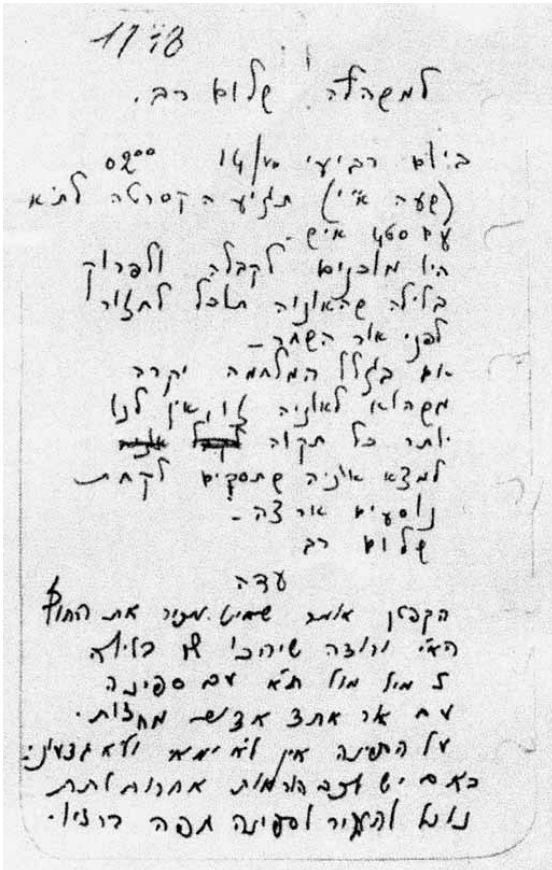 למשהלה שלום רב.
ביום רביעי 14/ 02⁰⁰
(שעה א"י) תגיע הקסרטה לת"א
עם איש -
היו מוכנים לקבלה ולפרוק
בלילה שהאוניה תוכל לחזור
לפני אור השחר -
אם בגלל המלחמה יקרה
משהוא לאוניה זו, אין לנו
יותר כל תקוה
למצא אוניה שתסכים לקחת
נוסעים ארצה -
שלום רב
עדה
הקפטן אומר מכיר את החוף
הא"י ורוצה שיחכו לו בלילה
מיל מול ת"א עם ספינה
עם אור אחד
על הספינה אין לא ימאי ולא
באם יש לכם הוראות אחרות לתת
נוכל להעביר לספינה מפה ברדיו.